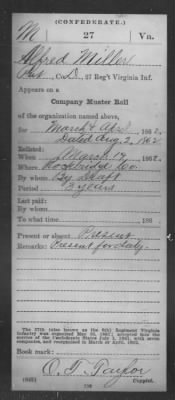 (CONFEDERATE.)
M 27 Va.
Alfred Miller
Pvt, Co. D, 27 Reg't Virginia Inf.
Appears on a
Company Muster Roll
of the organization named above,
for March & Apr., 1862.
Dated Aug. 2, 1862
Enlisted:
When March 19, 1862.
Where Rockbridge Co.
By whom By Draft
Period 3 years
Last paid:
By whom
To what time 186
Present or absent Present
Remarks: Present for duty.
The 27th (also known as the 6th) Regiment Virginia
Infantry was organized May 30, 1861; accepted into the
service of the Confederate States July 1, 1861, with seven
companies, and reorganized in March or April, 1862.
Book mark:
O. T. Taylor
(642) Copyist.